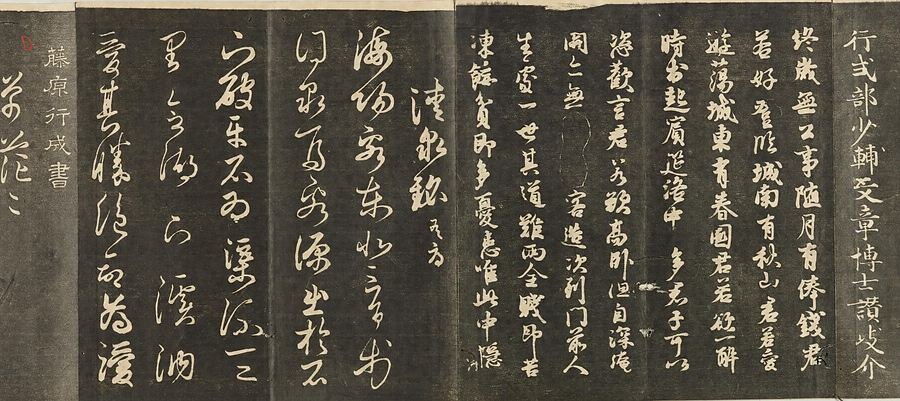 行式部少輔文章博士讃岐介
終歲無公事隨月有俸錢君
若好登臨城南有秋山君若愛
遊蕩城東有春園君若欲一醉
時出赴賓筵洛中多君子可以
恣歡言君若欲高臥但自深掩
關亦無客造次到門前人
生處一世其道難兩全賤即苦
凍餒貴即多憂患唯此中隱
泉銘
海陽
得泉源出於石
下破石為渠流二三
里溪
愛其勝絕為
藤原行成書
草茫々